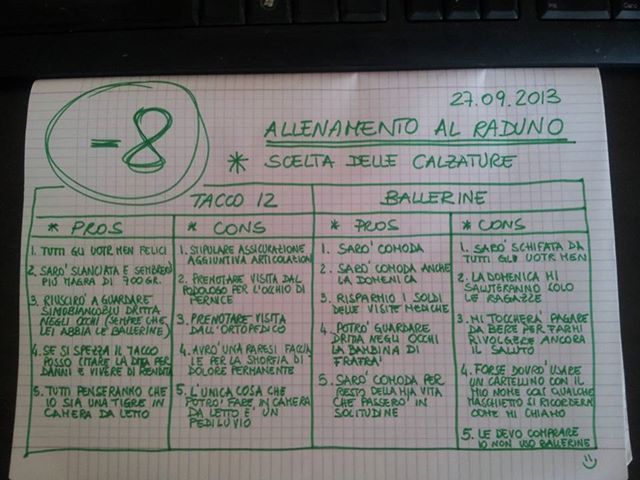 -8
27.09.2013
ALLENAMENTO AL RADUNO
* SCELTA DELLE CALZATURE
TACCO 12
* PROS
1. TUTTI GLI UOTR MEN FELICI
2. SARO' SLANCIATA E SEMBRERO'
PIÙ MAGRA DI 700 GR.
3. RIUSCIRO' A GUARDARE
SIMOBIANCOBLU DRITTA
NEGLI OCCHI (SEMPRE CHE
LEI ABBIA LE BALLERINE)
4. SE SI SPEZZA IL TACCO
POSSO CITARE LA DITTA PER
DANNI E VIVERE DI RENDITA
5. TUTTI PENSERANNO CHE
IO SIA UNA TIGRE IN
CAMERA DA LETTO
* CONS
1. STIPULARE ASSICURAZIONE
AGGIUNTIVA ARTICOLAZIONI
2. PRENOTARE VISITA DAL
PODOLOGO PER L'OCCHIO DI
PERNICE
3. PRENOTARE VISITA
DALL'ORTOPEDICO
4. AVRO' UNA PARESI FACCIA
LE PER LA SMORFIA DI
DOLORE PERMANENTE
5. L'UNICA COSA CHE
POTRO' FARE IN CAMERA
DA LETTO E' UN
PEDILUVIO
BALLERINE
* PROS
1. SARO' COMODA
2. SARO' COMODA ANCHE
LA DOMENICA
3. RISPARMIO I SOLDI
DELLE VISITE MEDICHE
4. POTRO' GUARDARE
DRITTA NEGLI OCCHI
LA BAMBINA DI
FRATRA'
5. SARO' COMODA PER
RESTO DELLA MIA VITA
CHE PASSERO' IN
SOLITUDINE
* CONS
1. SARO' SCHIFATA DA
TUTTI GLI UOTR MEN
2. LA DOMENICA MI
SALUTERANNO SOLO
LE RAGAZZE
3. MI TOCCHERA' PAGARE
DA BERE PER FARMI
RIVOLGERE ANCORA
IL SALUTO
4. FORSE DOVRO' USARE
UN CARTELLINO CON IL
MIO NOME COSÌ QUALCHE
MASCHIETTO SI RICORDERA'
COME MI CHIAMO
5. LE DEVO COMPRARE
IO NON USO BALLERINE